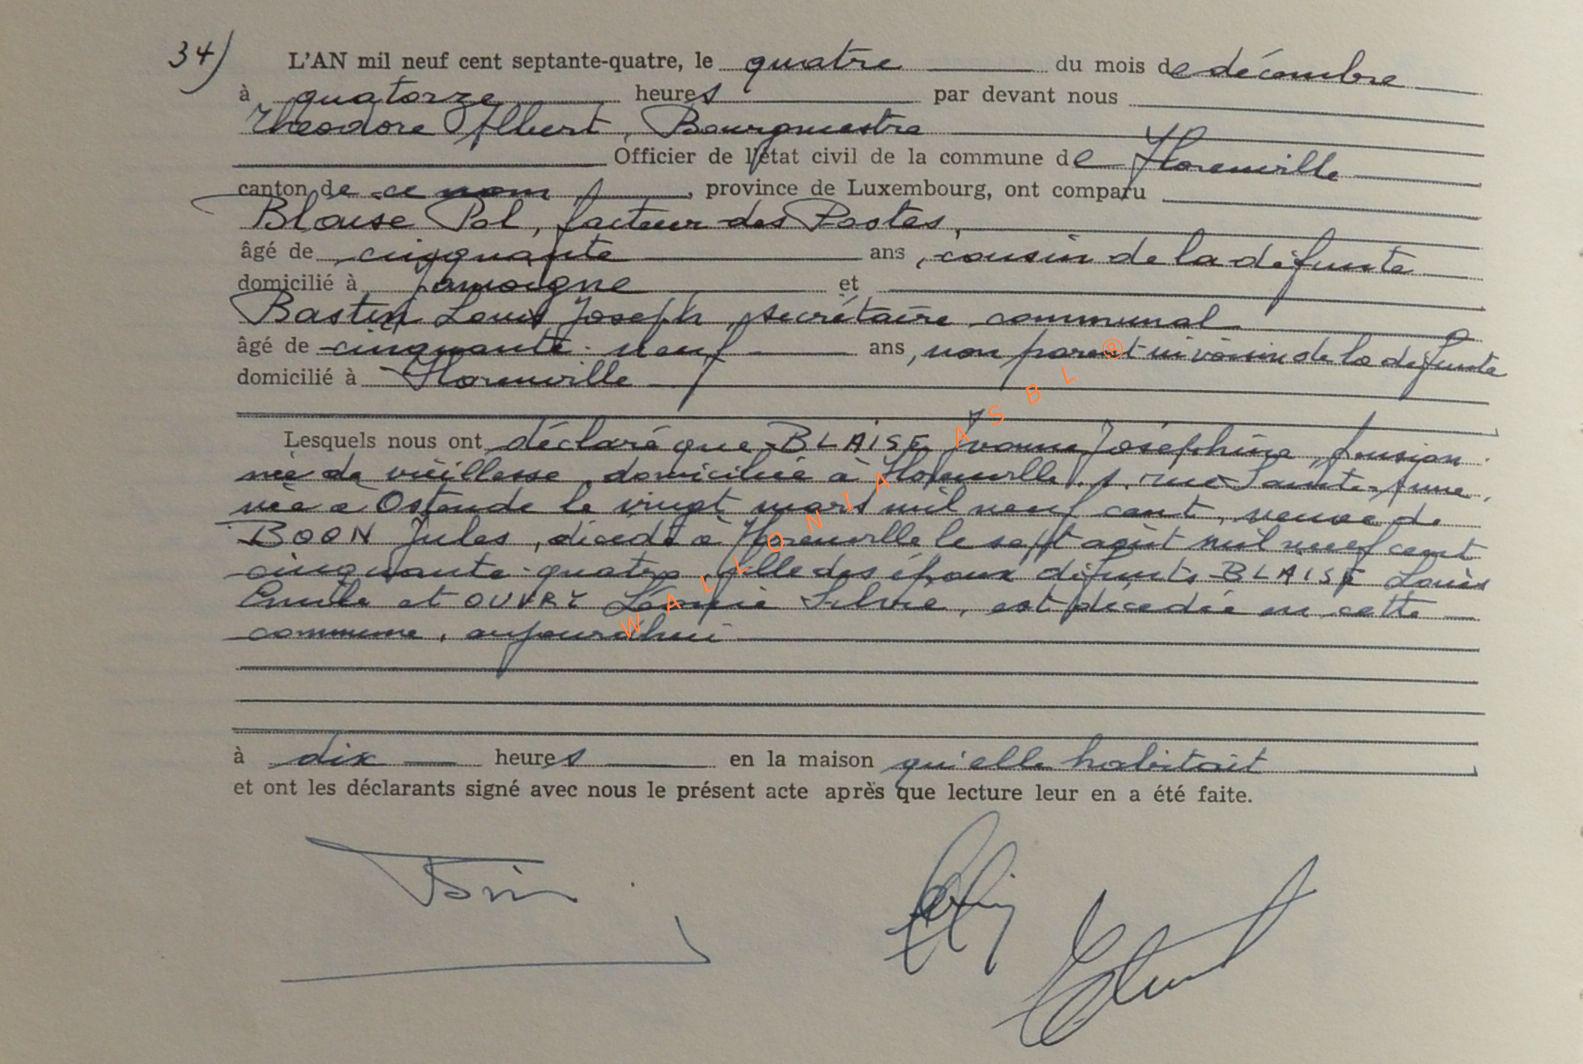 34) L'AN mil neuf cent septante-quatre, le quatre du mois de décembre
à quatorze heures par devant nous
Théodore Albert, Bourgmestre
Officier de l'état civil de la commune de Florenville
canton de ce nom, province de Luxembourg, ont comparu
Blaise Pol, facteur des Postes,
âgé de cinquante ans, cousin de la défunte
domicilié à Jamoigne et
Bastin Louis Joseph, secrétaire communal
âgé de cinquante-neuf ans, non parent ni voisin de la défunte
domicilié à Florenville
Lesquels nous ont déclaré que BLAISE Yvonne Joséphine, pension-
née de vieillesse, domiciliée à Florenville, rue Sainte-Anne,
née à Ostende le vingt mars mil neuf cent, veuve de
BOON Jules, décédé à Florenville le sept août mil neuf cent
cinquante-quatre, fille des époux défunts BLAISE Louis
Emile et OUVRY Léonie Silvie, est décédée en cette
commune, aujourd'hui
à dix heures en la maison qu'elle habitait
et ont les déclarants signé avec nous le présent acte après que lecture leur en a été faite.
WALLONIA ASBL®